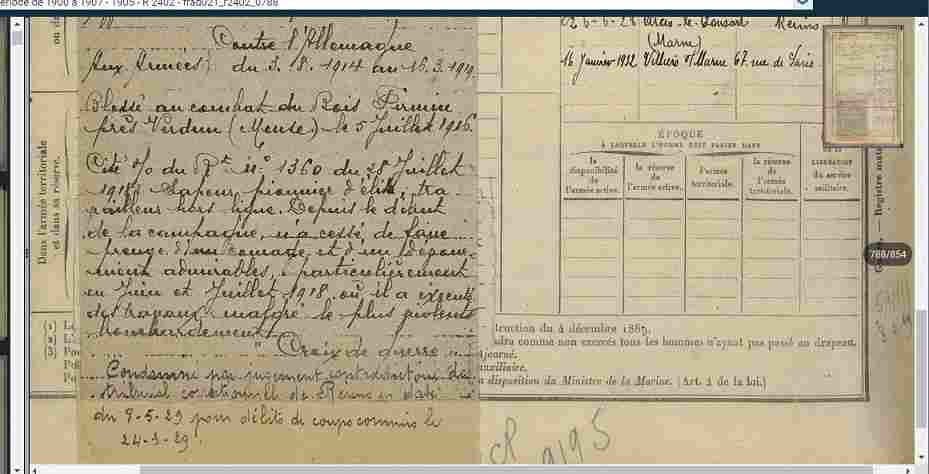 période de 1900 à 1907 - 1905 - R 2402 - frad021_r2402_0788
Contre l'Allemagne
Aux Armées) du 3.8.1914 au 15.3.919
Blessé au combat du Bois Firmin
près Verdun (Meuse) le 5 Juillet 1916.
Cité o/ du Rt n° 1360 du 28 Juillet
1918 Sapeur, pionnier d'élite, tra-
vailleur hors ligne. Depuis le début
de la campagne, n'a cessé de faire
preuve d'un courage et d'un
admirables, particulièrement
en Juin et Juillet 1918 où il a exécuté
des travaux malgré le plus violent
bombardement
Croix de guerre
Condamné par jugement contradictoire du
tribunal correctionnel de Reims en date
du 9-5-29 pour délits de coups commis le
24-3-29
26-6-28 Reims
(Marne)
16 Janvier 1932 Villiers s/Marne 67 rue de Paris
Dans l'armée territoriale
et dans sa réserve.
ÉPOQUE
À LAQUELLE L'HOMME DOIT PASSER DANS
la disponibilité de l'armée active.
la réserve de l'armée active.
l'armée territoriale.
la réserve de l'armée territoriale.
LIBÉRATION
du service
militaire.
— Registre mat
788/854
(1) L
(2) L
(3) Po
truction du 4 décembre 1889.
dra comme non exercés tous les hommes n'ayant pas passé au drapeau.
Ajourné.
auxiliaire.
a disposition du Ministre de la Marine. (Art. 4 de la loi.)
9195